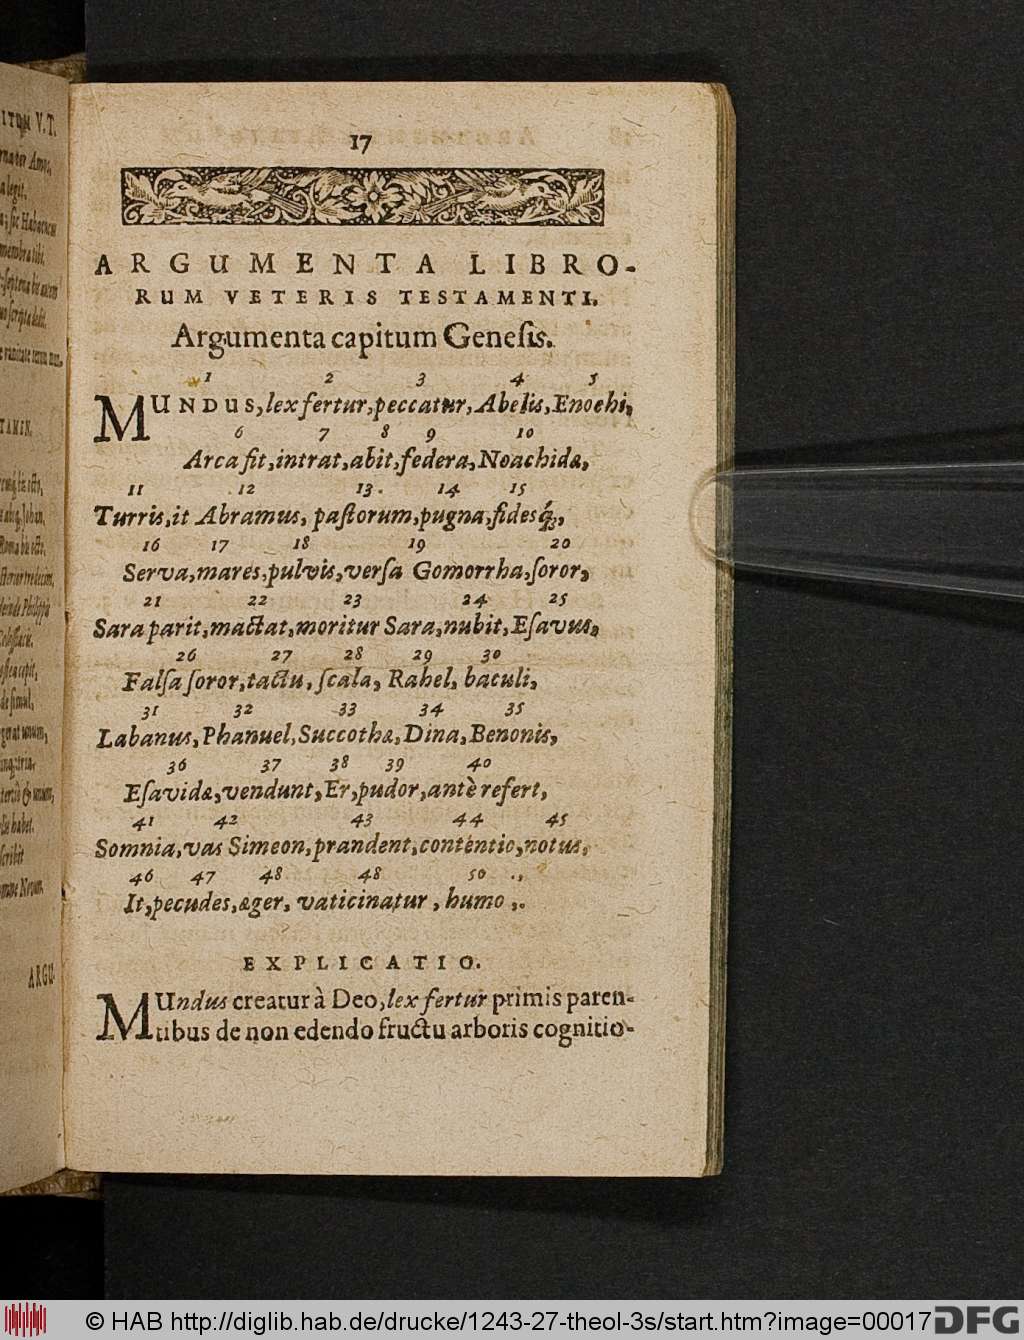 17
ARGUMENTA LIBRO-
RUM VETERIS TESTAMENTI.
Argumenta capitum Geneſis.
1 2 3 4 5
MUNDUS, lex fertur, peccatur, Abelis, Enochi,
6 7 8 9 10
Arca fit, intrat, abit, fœdera, Noachidæ,
11 12 13. 14 15
Turris, it Abramus, paſtorum, pugna, fidesq́;,
16 17 18 19 20
Serva, mares, pulvis, verſa Gomorrha, ſoror,
21 22 23 24 25
Sara parit, mactat, moritur Sara, nubit, Eſavus,
26 27 28 29 30
Falſa ſoror, tactu, ſcala, Rahel, baculi,
31 32 33 34 35
Labanus, Phanuel, Succothæ, Dina, Benonis,
36 37 38 39 40
Eſavidæ, vendunt, Er, pudor, antè refert,
41 42 43 44 45
Somnia, vas Simeon, prandent, contentio, notus,
46 47 48 48 50
It, pecudes, æger, vaticinatur, humo.
EXPLICATIO.
MUndus creatur à Deo, lex fertur primis paren-
tibus de non edendo fructu arboris cognitio-
ITUM V.T.
Amos,
a legit.
ſic Habacuc
membra tibi.
ARGU-
© HAB http://diglib.hab.de/drucke/1243-27-theol-3s/start.htm?image=00017
DFG